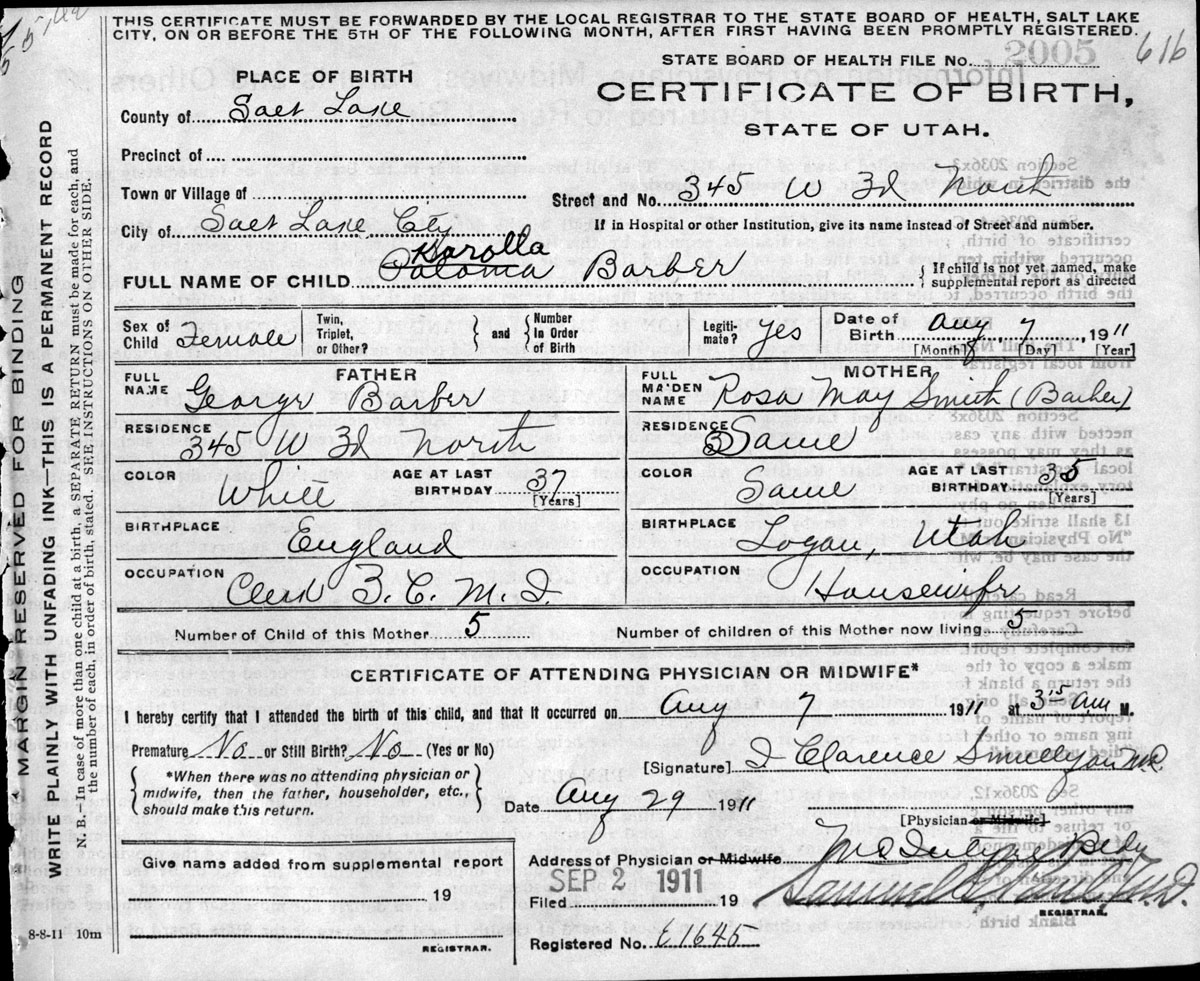 THIS CERTIFICATE MUST BE FORWARDED BY THE LOCAL REGISTRAR TO THE STATE BOARD OF HEALTH, SALT LAKE
CITY, ON OR BEFORE THE 5TH OF THE FOLLOWING MONTH, AFTER FIRST HAVING BEEN PROMPTLY REGISTERED.
STATE BOARD OF HEALTH FILE No. 2005 616
PLACE OF BIRTH
CERTIFICATE OF BIRTH,
STATE OF UTAH.
County of Salt Lake
Precinct of
Town or Village of
Street and No. 345 W 3d North
City of Salt Lake City
If in Hospital or other Institution, give its name instead of Street and number.
Karolla
FULL NAME OF CHILD Paloma Barber
If child is not yet named, make supplemental report as directed
Sex of Child Female
Twin, Triplet, or Other?
and
Number in Order of Birth
Legiti-mate? Yes
Date of Birth Aug 7 1911
[Month] [Day] [Year]
FATHER
FULL NAME George Barber
RESIDENCE 345 W 3d North
COLOR White
AGE AT LAST BIRTHDAY 37 [Years]
BIRTHPLACE England
OCCUPATION Clerk Z. C. M. I.
MOTHER
FULL MAIDEN NAME Rosa May Smith (Barber)
RESIDENCE Same
COLOR Same
AGE AT LAST BIRTHDAY [Years]
BIRTHPLACE Logan, Utah
OCCUPATION Housewife
Number of Child of this Mother 5
Number of children of this Mother now living 5
CERTIFICATE OF ATTENDING PHYSICIAN OR MIDWIFE*
I hereby certify that I attended the birth of this child, and that it occurred on Aug 7 1911 at 3 15 am M.
Premature No or Still Birth? No (Yes or No)
*When there was no attending physician or midwife, then the father, householder, etc., should make this return.
[Signature] Clarence M.D.
Date Aug 29 1911
[Physician or Midwife]
Give name added from supplemental report
19
REGISTRAR.
Address of Physician or Midwife
Filed SEP 2 1911 19
Samuel G. Paul M.D.
REGISTRAR.
Registered No. 61645
8-8-11 10m
MARGIN RESERVED FOR BINDING
WRITE PLAINLY WITH UNFADING INK—THIS IS A PERMANENT RECORD
N. B.—In case of more than one child at a birth, a SEPARATE RETURN must be made for each, and
the number of each, in order of birth, stated. SEE INSTRUCTIONS ON OTHER SIDE.